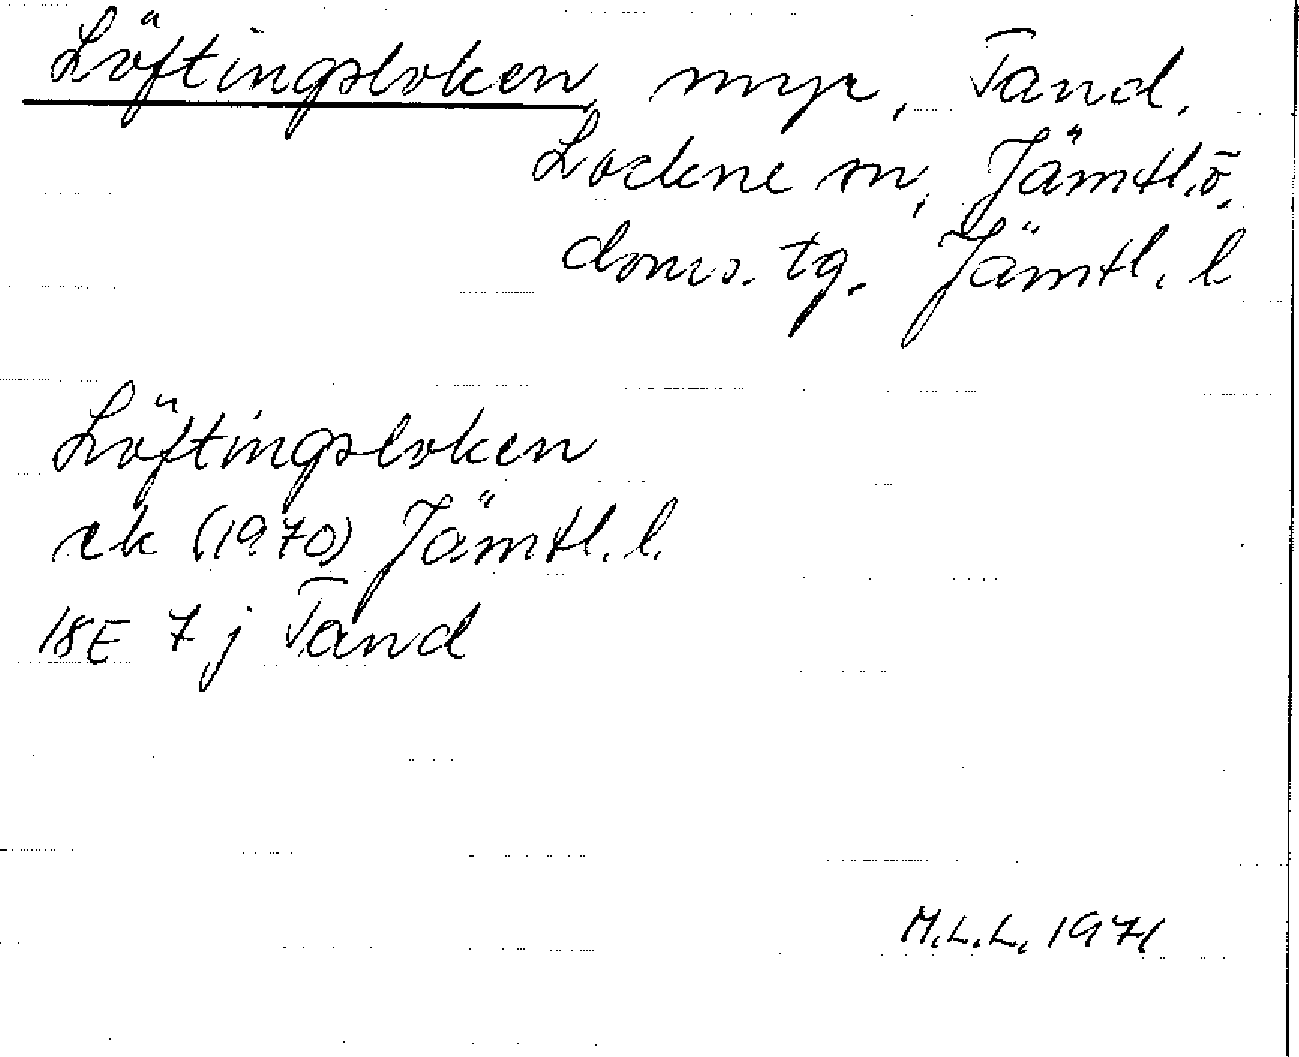 Löftingsloken myr, Tand.
Lockne sn, Jämtl.ö.
doms. tg. Jämtl. l
Löftingsloken
ek (1970) Jämtl. l.
18E 7 j Tand
M.L.L. 1971